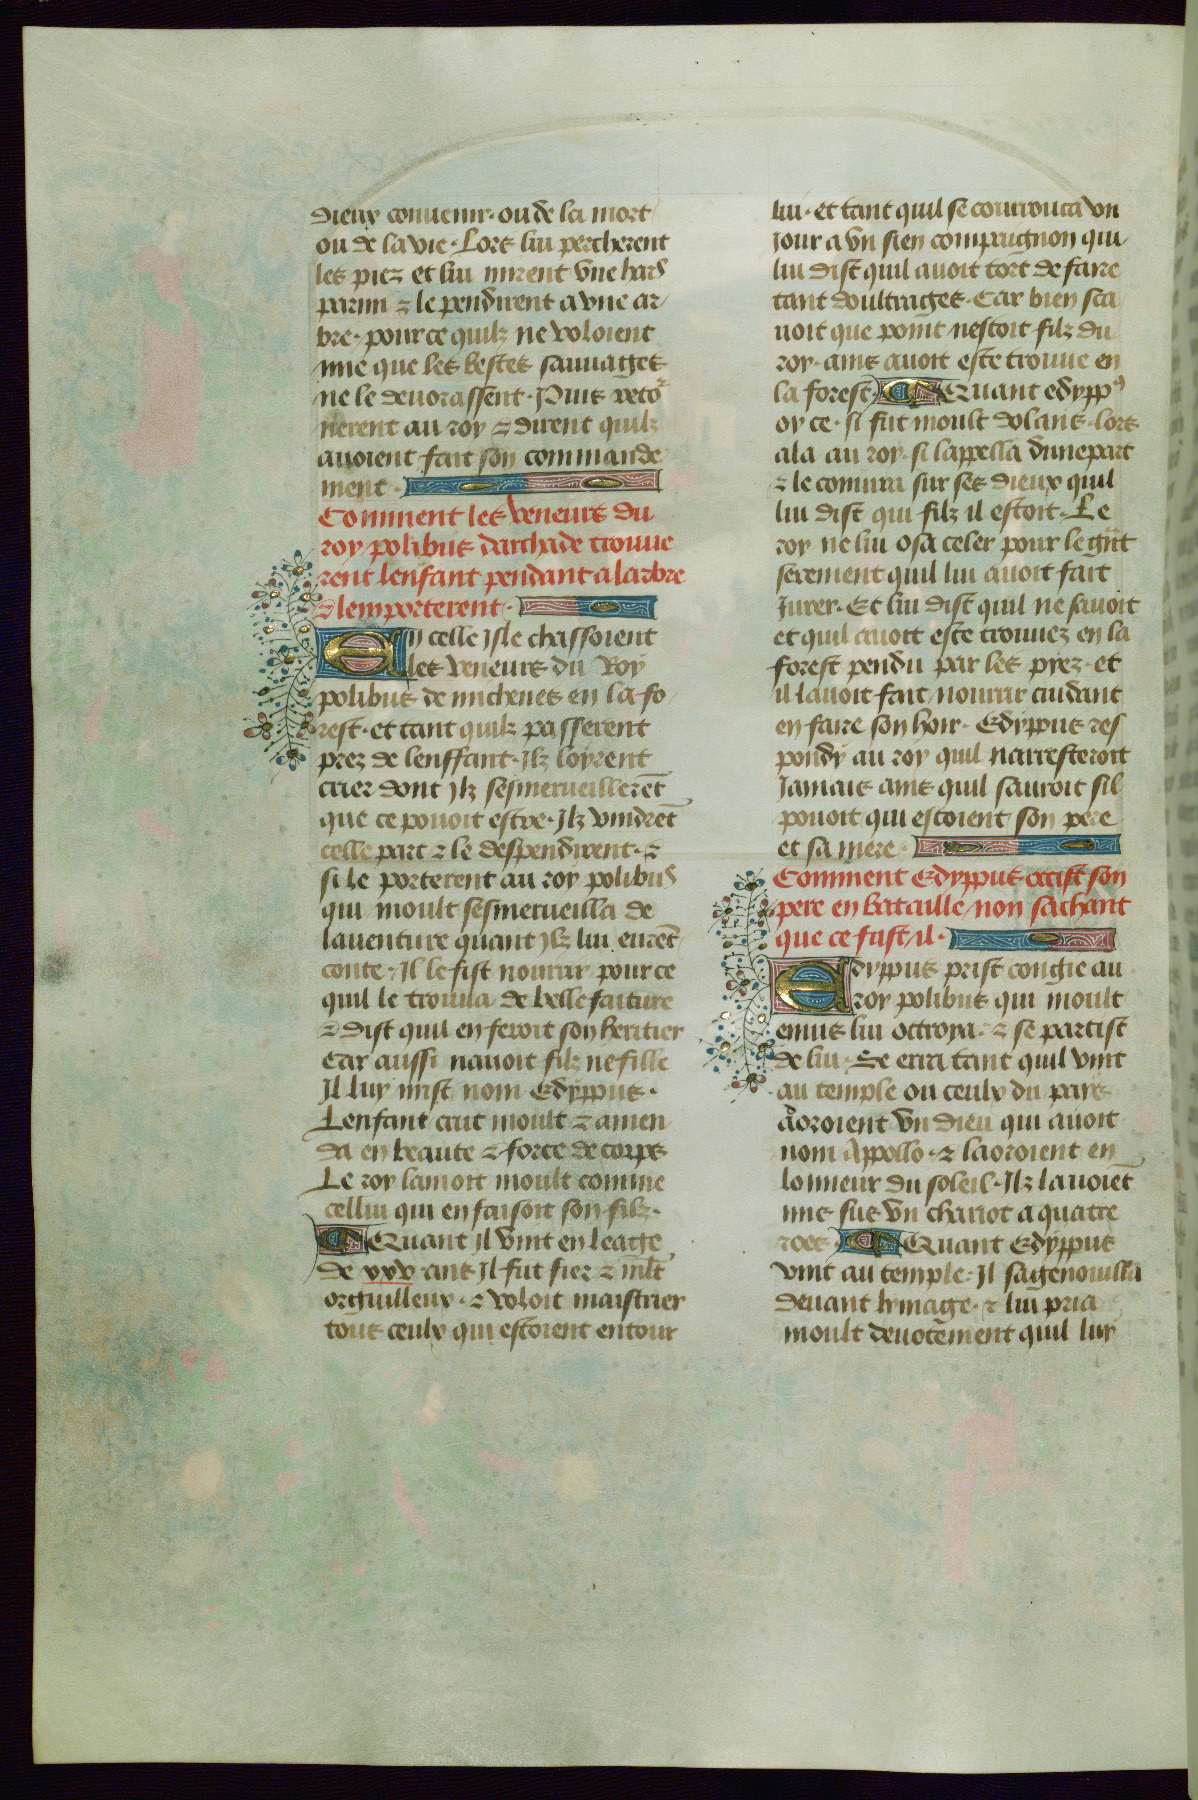 dieux conuenir· ou de la mort
ou de la vie· Lors lui percherent
les piez et lui mirent vne hard
parmi ⁊ le pendirent a vne ar
bre· pour ce quilz ne voloient
mie que les bestes sauuages
ne le deuorassent· Puis retor
nerent au roy ⁊ dirent quilz
auoient fait son commande
ment·
Comment les veneurs du
roy polibus darchade trouue
rent lenfant pendant a larbre
⁊ lemporterent·
En celle jsle chassoient
les veneurs du Roy
polibus de michenes en la fo
rest· et tant quilz passerent
prez de lenffant· jlz loyrent
crier dont jlz sesmerueillerēt
que ce pouoit estre· Jlz vindrēt
celle part ⁊ le despendirent· ⁊
si le porterent au roy polibus
qui moult sesmerueilla de
lauenture quant jlz lui eurēt
conte· Il le fist nourrir pour ce
quil le trouua de belle faiture
⁊ dist quil en feroit son heritier
Car aussi nauoit filz ne fille
Il luy mist nom Edyppus·
Lenfant crut moult ⁊ amen
da en beaute ⁊ force de corps
Le roy lamoit moult comme
cellui qui en faisoit son filz·
Quant il vint en leage
de xxv· ans Il fut fier ⁊ mlt
orguilleux· ⁊ voloit maistrier
tous ceulx qui estoient entour
lui· et tant quil se courouca vn
jour a vn sien compaignon qui
lui dist quil auoit tort de faire
tant doultrages· Car bien sca
uoit que point nestoit filz du
roy· ains auoit este trouue en
la forest· Quant edyppꝰ
oy ce· si fut moult dolans· lors
ala au roy· si lappella dunepart
⁊ le coniura sur ses dieux quil
lui dist qui filz il estoit· Le
roy ne lui osa celer pour le grāt
serement quil lui auoit fait
Jurer· Et lui dist quil ne sauoit
et quil auoit este trouuez en la
forest pendu par les piez· et
il lauoit fait nourrir cuidant
en faire son hoir· Edyppus res
pondy au roy quil narresteroit
Jamais ains quil sauroit sil
pouoit qui estoient son pere
et sa mere·
Comment Edyppus occist son
pere en bataille non sachant
que ce fust il·
Edyppus prist congie au
roy polibus qui moult
enuis lui octroya· ⁊ se partist
de lui· Se erra tant quil vint
au temple ou ceulx du pais
aoroient vn dieu qui auoit
nom Appollo· ⁊ laoroient en
lonneur du soleil· Ilz lauoiēt
mis sus vn chariot a quatre
roes· Quant Edyppus
vint au temple· Il sagenouilla
deuant lymage· ⁊ lui pria
moult deuotement quil luy